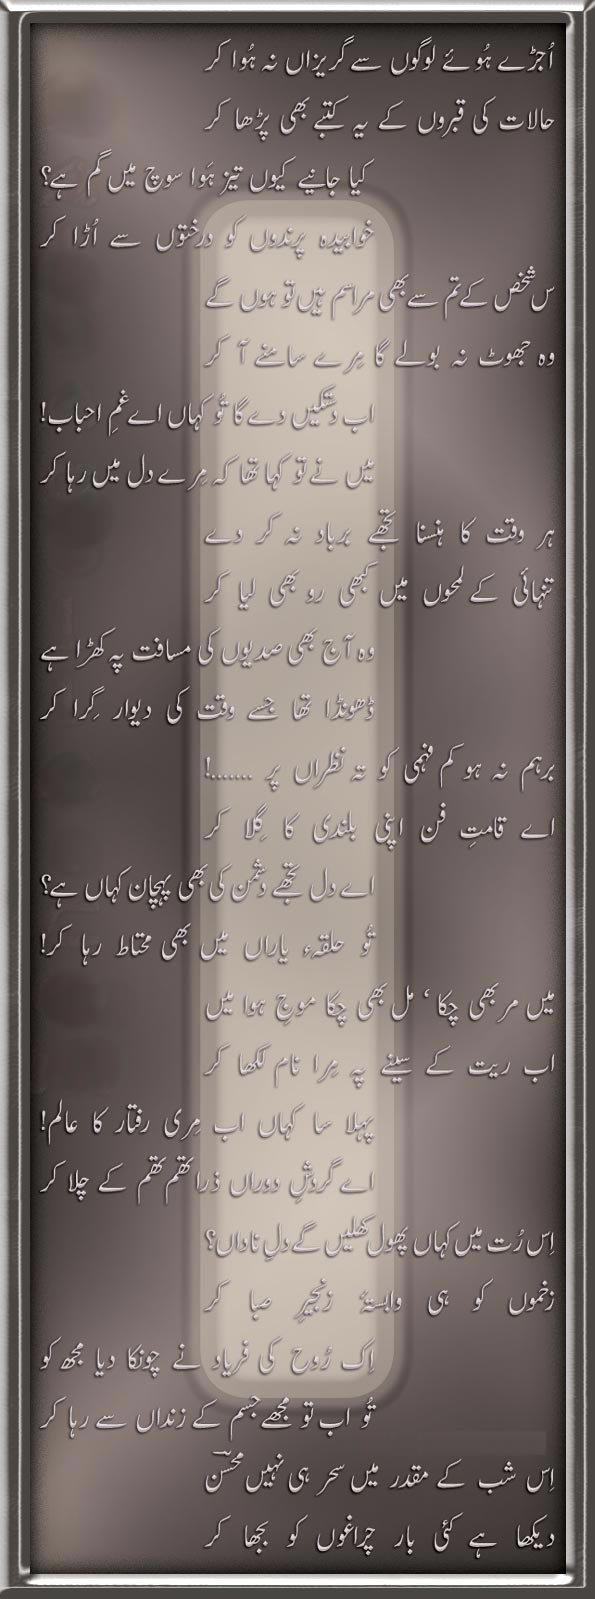 اُجڑے ہُوئے لوگوں سے گریزاں نہ ہُوا کر
حالات کی قبروں کے یہ کتبے بھی پڑھا کر
کیا جانیے کیوں تیز ہَوا سوچ میں گم ہے؟
خوابیدہ پرندوں کو درختوں سے اُڑا کر
س شخص کے تم سے بھی مراسم ہیں تو ہوں گے
وہ جھوٹ نہ بولے گا مِرے سامنے آ کر
اب دستکیں دے گا تُو کہاں اے غمِ احباب!
میں نے تو کہا تھا کہ مِرے دل میں رہا کر
ہر وقت کا ہنسنا تجھے برباد نہ کر دے
تنہائی کے لمحوں میں کبھی رو بھی لیا کر
وہ آج بھی صدیوں کی مسافت پہ کھڑا ہے
ڈھونڈا تھا جسے وقت کی دیوار گِرا کر
برہم نہ ہو کم فہمی کو تہ نظراں پر .......!
اے قامتِ فن اپنی بلندی کا گِلا کر
اے دل تجھے دشمن کی بھی پہچان کہاں ہے؟
تُو حلقہء یاراں میں بھی محتاط رہا کر!
میں مر بھی چکا ‘ مل بھی چکا موجِ ہوا میں
اب ریت کے سینے پہ مِرا نام لکھا کر
پہلا سا کہاں اب مِری رفتار کا عالم!
اے گردشِ دوراں ذرا تھم تھم کے چلا کر
اِس رُت میں کہاں پھول کھلیں گے دلِ ناداں؟
زخموں کو ہی وابستۂ زنجیرِ صبا کر
اِک رُوح کی فریاد نے چونکا دیا مجھ کو
تُو اب تو مجھے جسم کے زنداں سے رہا کر
اِس شب کے مقدر میں سحر ہی نہیں محسؔن
دیکھا ہے کئی بار چراغوں کو بجھا کر